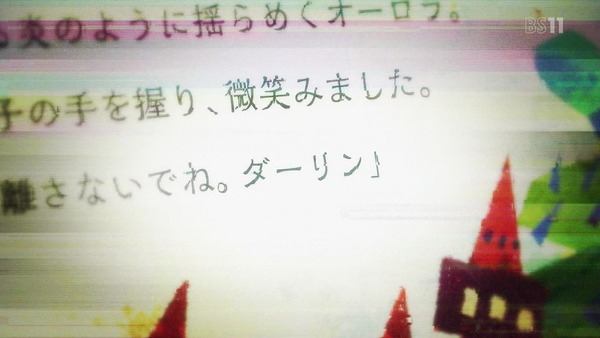 BS11
炎のように揺らめくオーロラ。
子の手を握り、微笑みました。
離さないでね。ダーリン」